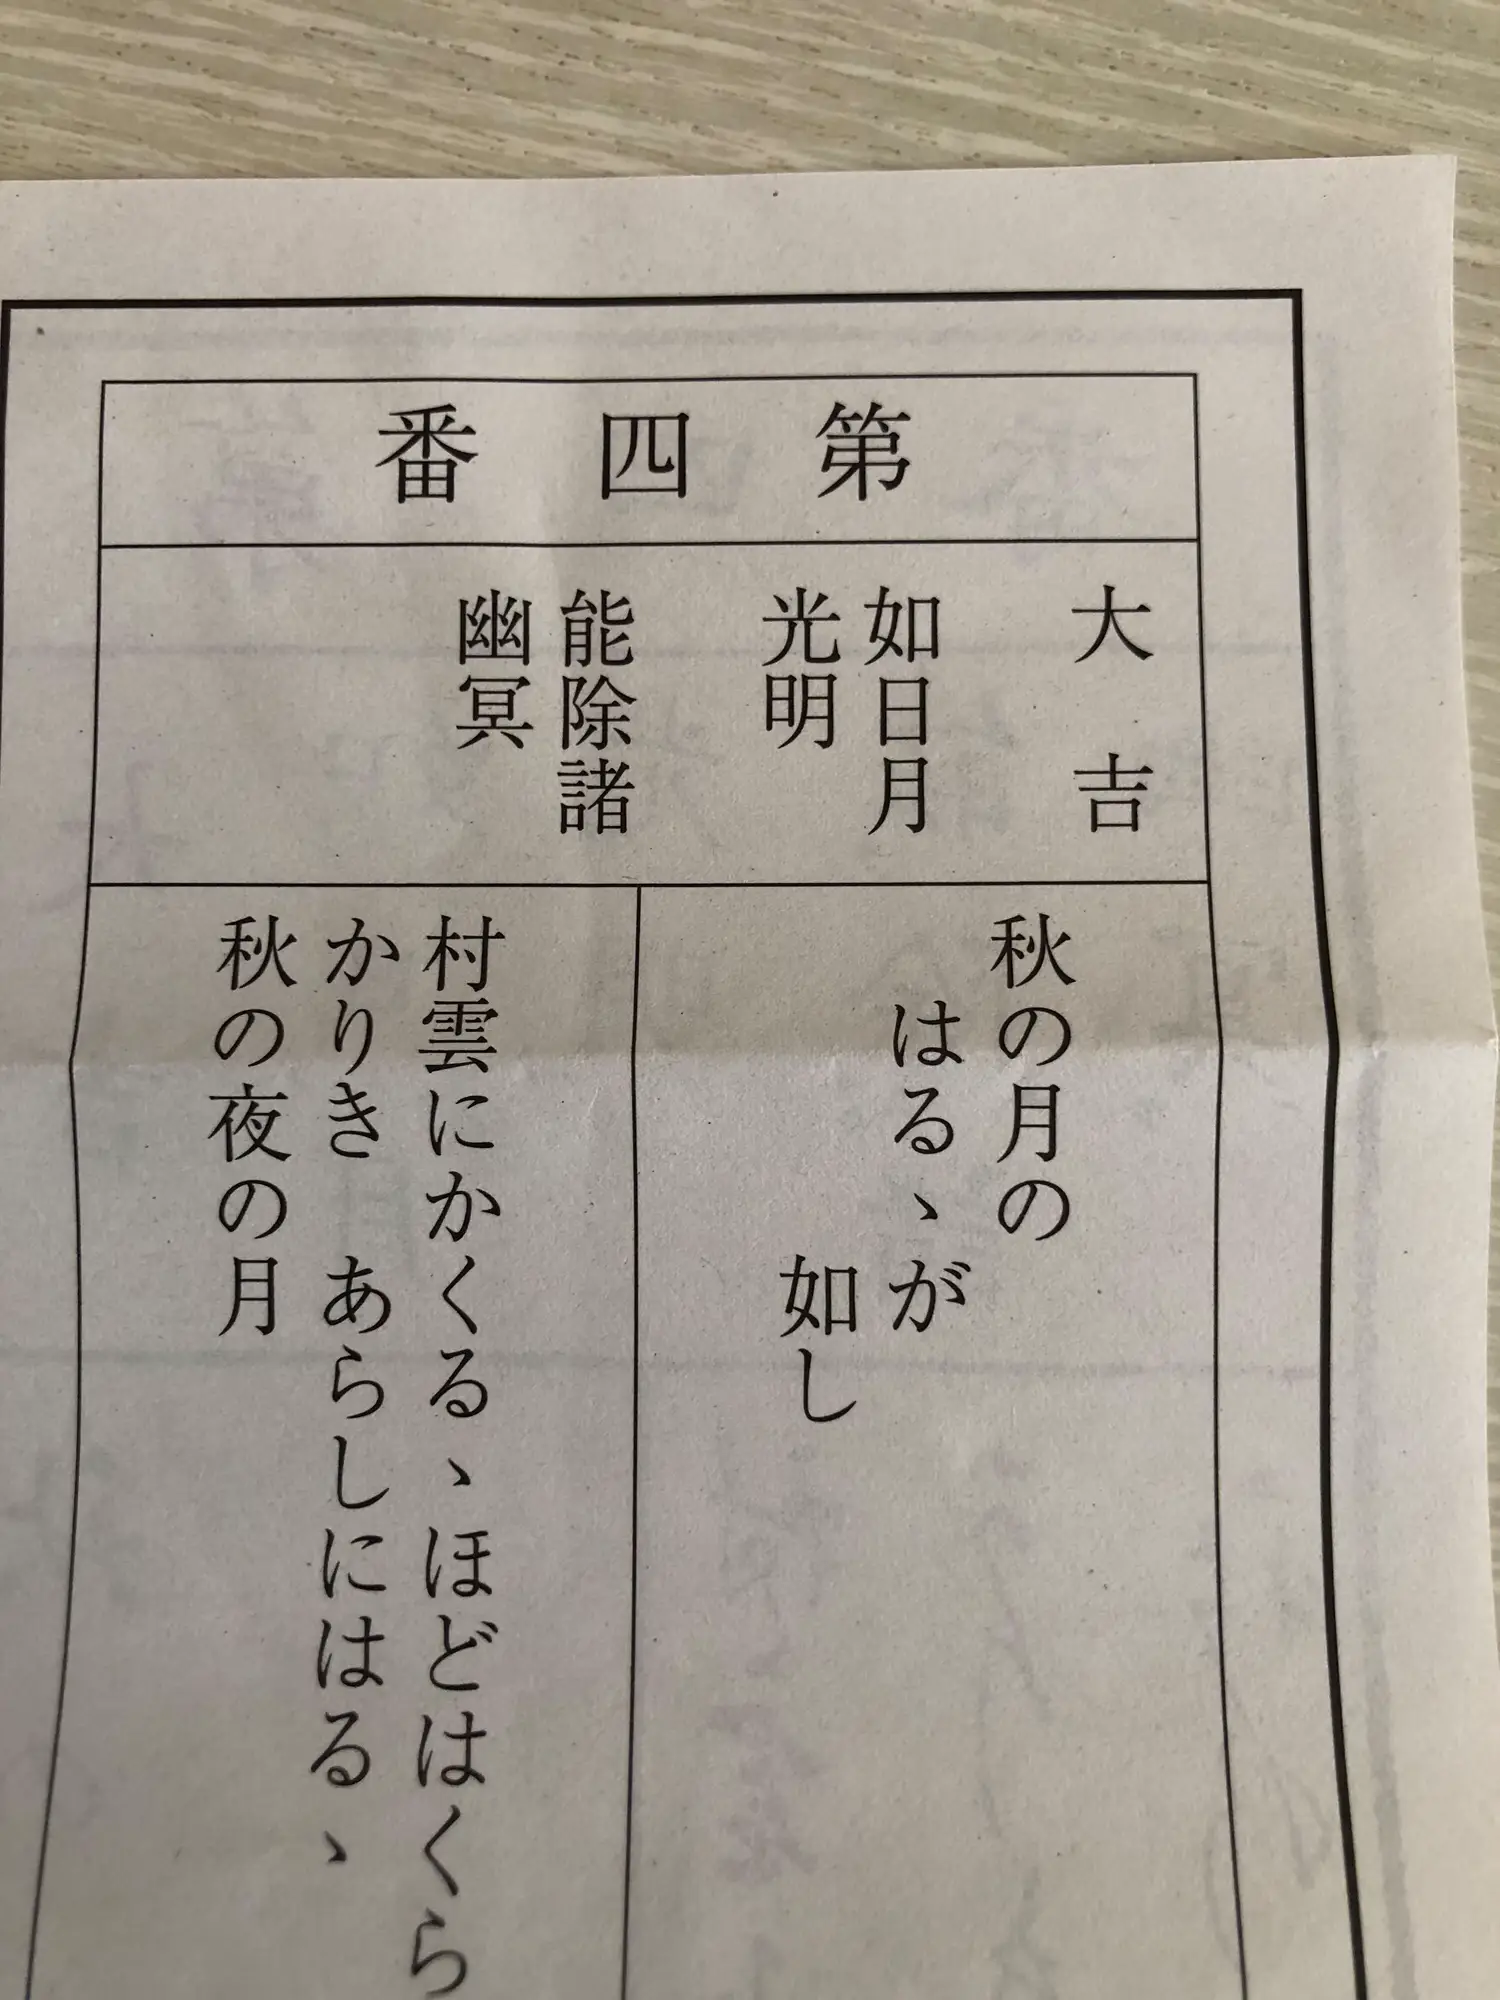 第四番
大吉
如日月
光明
能除諸
幽冥
秋の月の
はるゝが
如し
村雲にかくるゝほどはくら
かりき　あらしにはるゝ
秋の夜の月